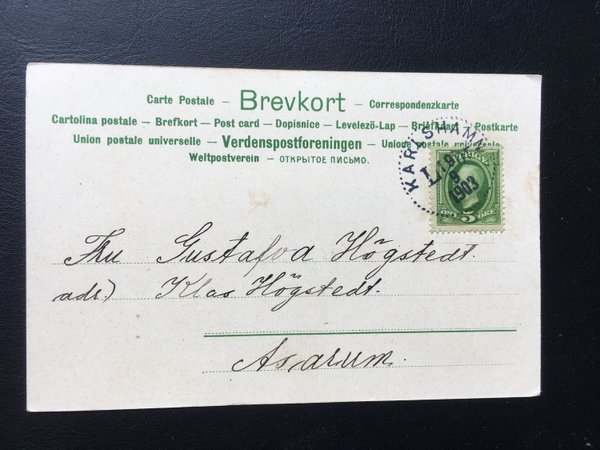 Carte Postale – Brevkort – Correspondenzkarte
Cartolina postale – Brefkort – Post card – Dopisnice – Levelező-Lap – Briefkaart – Postkarte
Union postale universelle – Verdenspostforeningen – Unione postale universale
Weltpostverein – ОТКРЫТОЕ ПИСЬМО.
KARLSHAMN
1903
SVERIGE
5 ÖRE
Fru Gustafva Högstedt
adr) Klas Högstedt.
Asarum.